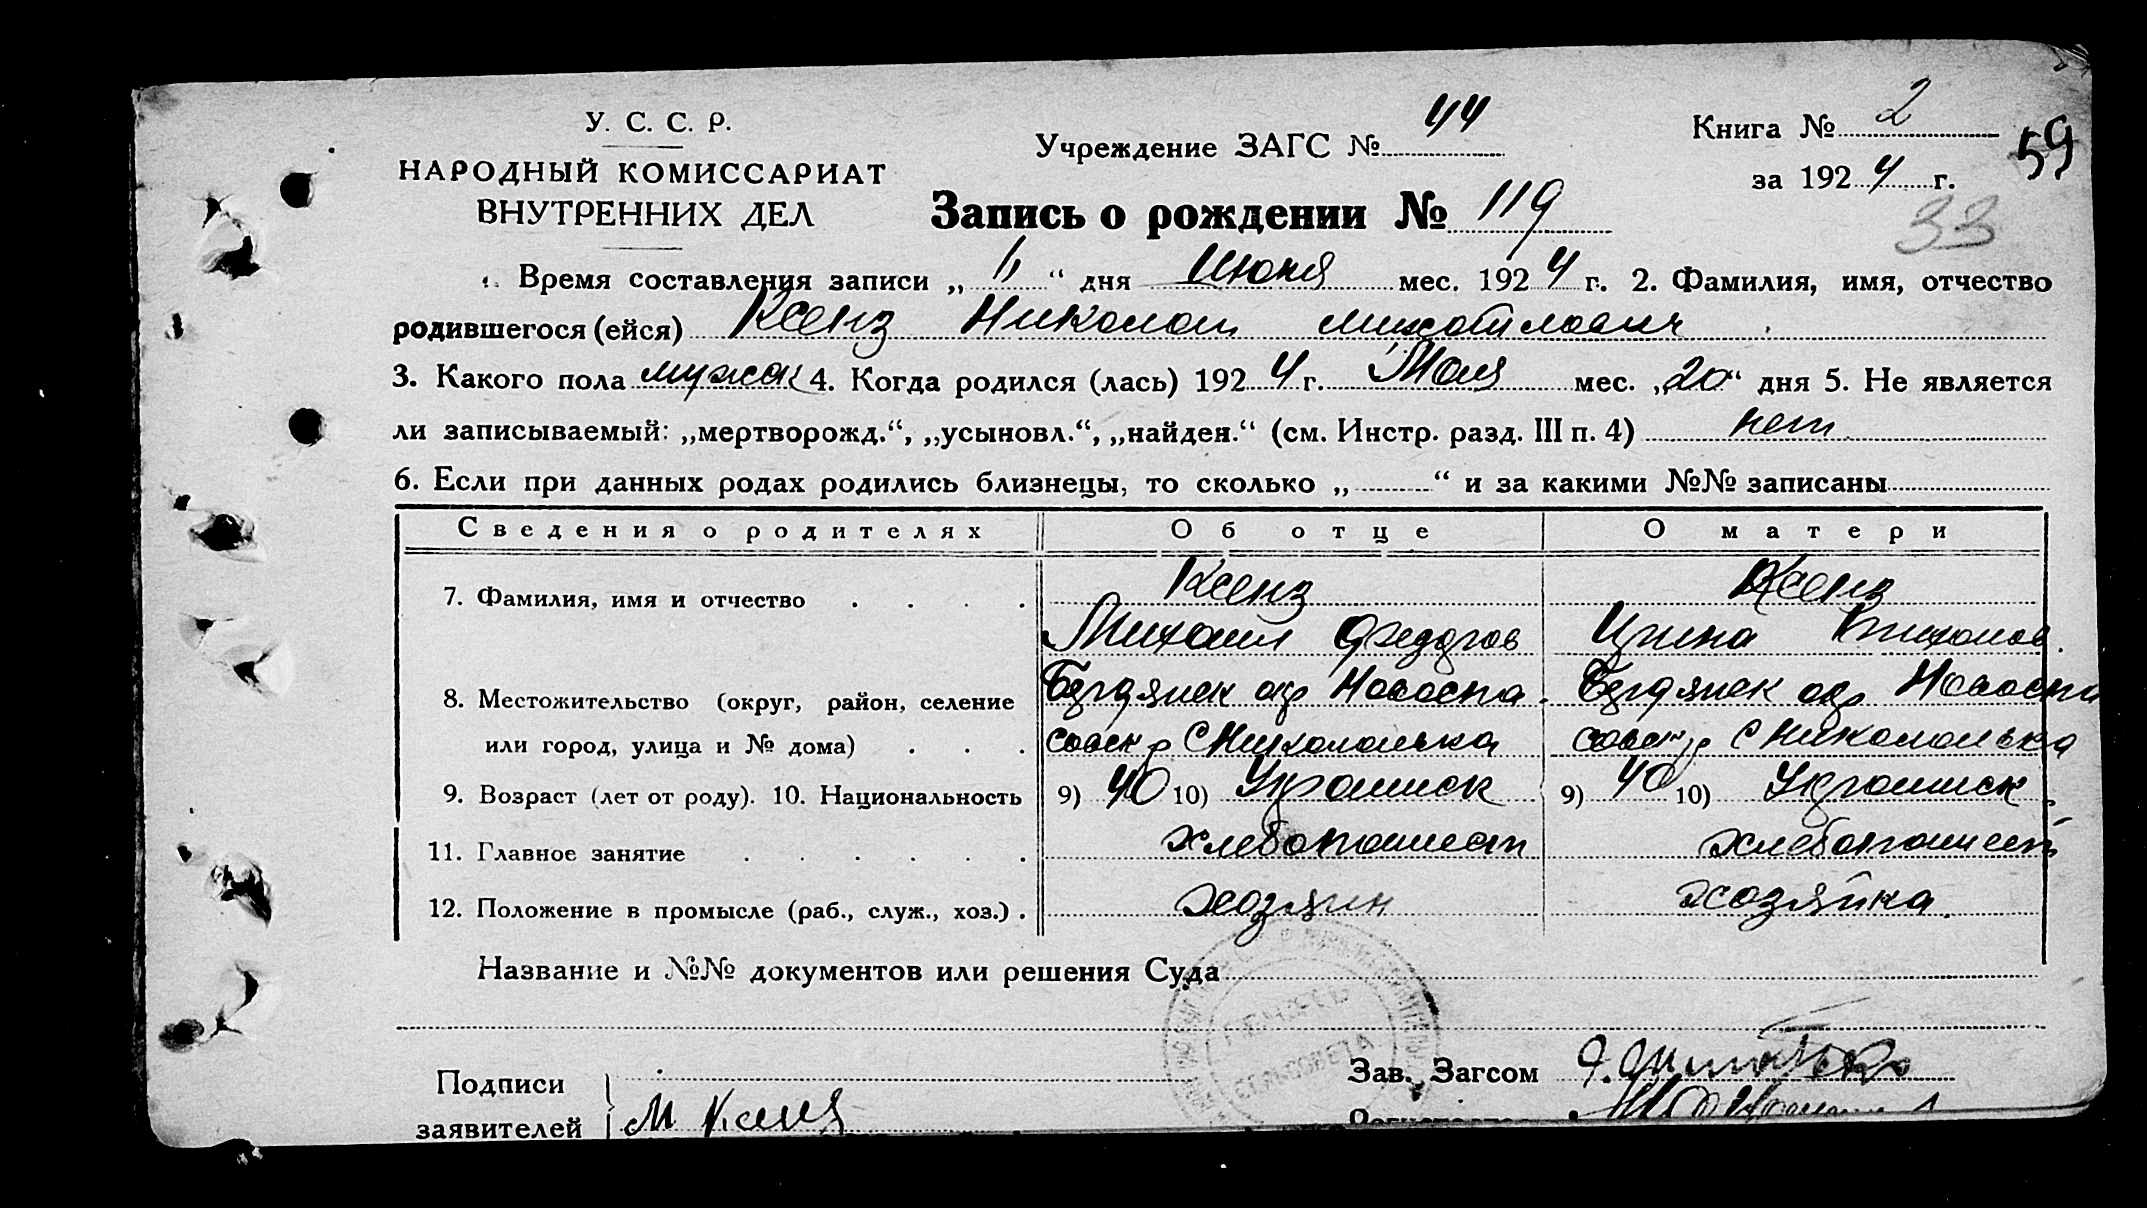 У. С. С. Р.
НАРОДНЫЙ КОМИССАРИАТ
ВНУТРЕННИХ ДЕЛ
Учреждение ЗАГС № 44
Книга № 2
за 1924 г.
59
33
Запись о рождении № 119
1. Время составления записи „11“ дня Июня мес. 1924 г. 2. Фамилия, имя, отчество
родившегося (ейся) Ксенз Николай Михайлович
3. Какого пола мужск 4. Когда родился (лась) 1924 г. Мая мес. „20“ дня 5. Не является
ли записываемый: „мертворожд.“, „усыновл.“, „найден.“ (см. Инстр. разд. III п. 4) нет
6. Если при данных родах родились близнецы, то сколько „ “ и за какими №№ записаны
Сведения о родителях Об отце О матери
7. Фамилия, имя и отчество Ксенз Ксенз
Михаил Федоров Ирина
8. Местожительство (округ, район, селение Бердянск окр Новоспа Бердянск окр Новоспа
или город, улица и № дома) совск р С Николаевка совск р С Николаевка
9. Возраст (лет от роду). 10. Национальность 9) 40 10) Украинск 9) 40 10) Украинск
11. Главное занятие хлебопашест хлебопашест
12. Положение в промысле (раб., служ., хоз.) хозяин хозяйка
Название и №№ документов или решения Суда
Подписи
заявителей
М Ксенз
Зав. Загсом